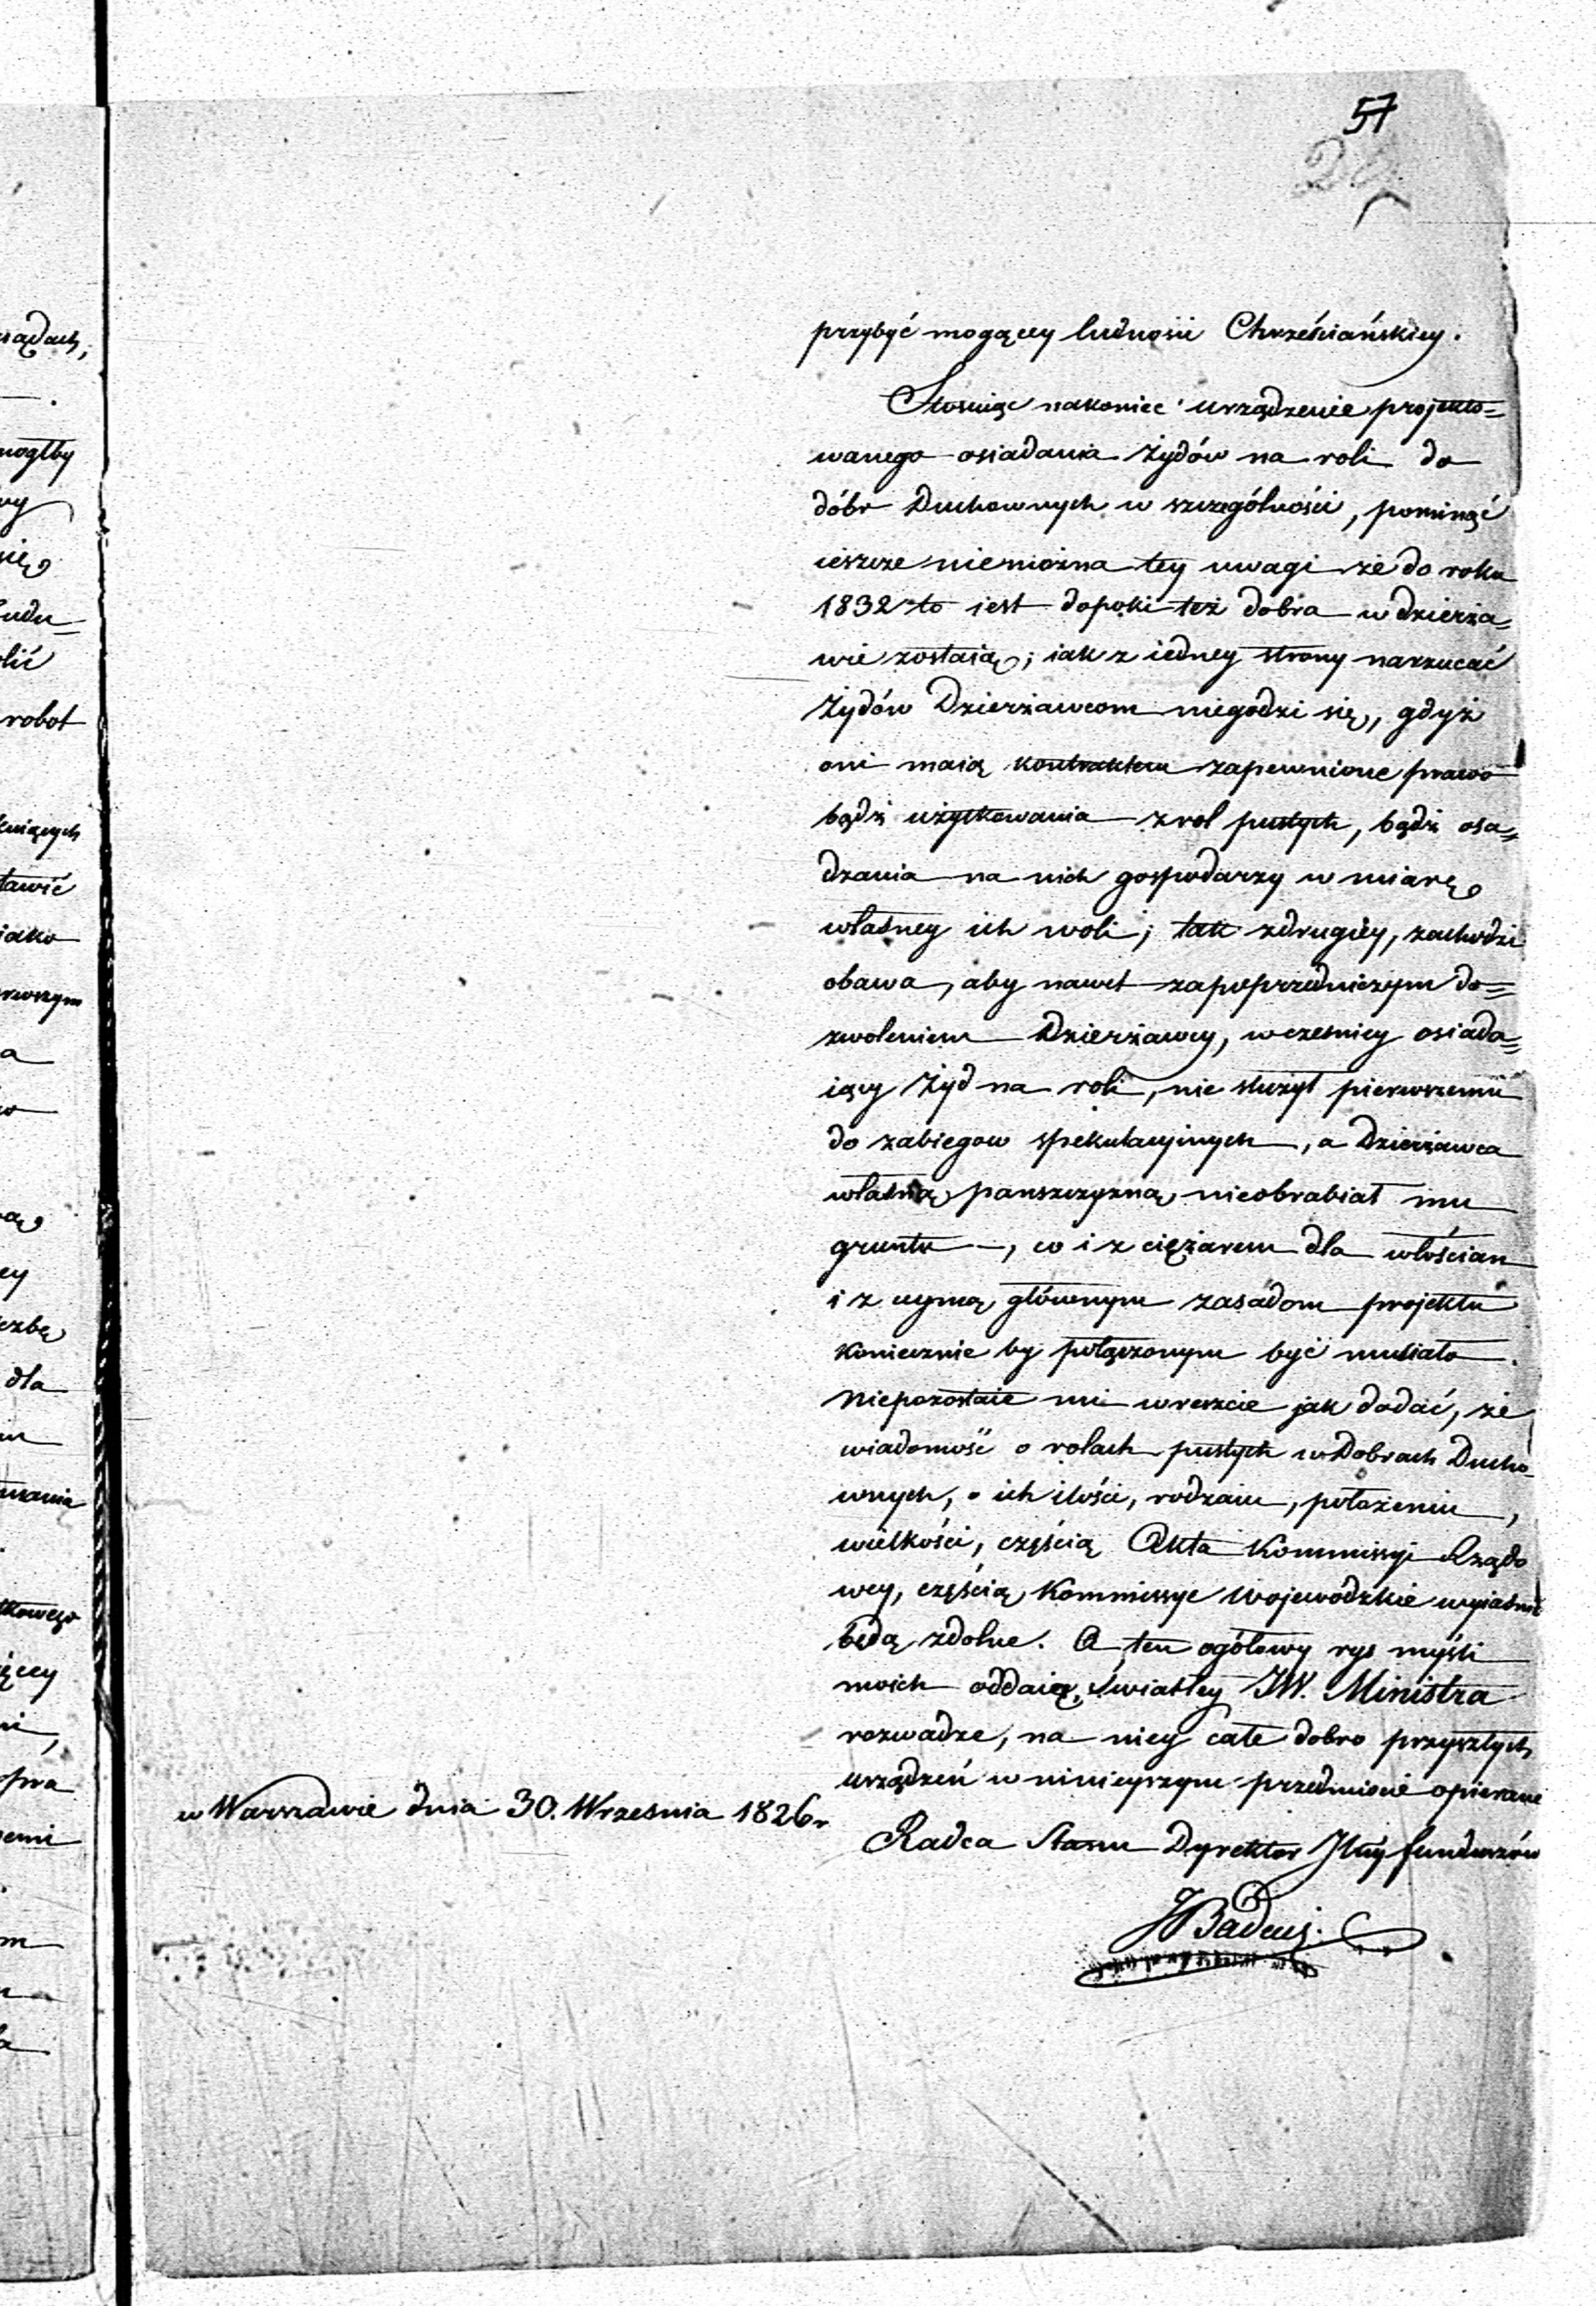 57
przybyć mogącey ludności Chrześciańskiey.
Stosuiąc nakoniec urządzenie projekto=
wanego osiadania Żydów na roli do
dóbr Duchownych w szczególności, pominąć
ieszcze niemożna tey uwagi że do roku
1832 to iest dopoki też dobra w dzierża=
wie zostaią; iak z iedney strony narzucać
Żydów Dzierżawcom niegodzi się, gdyż
oni maią kontraktem zapewnione prawo
bądź użytkowania z rol pustych, bądź osa=
dzania na nich gospodarzy w miarę
własney ich woli; tak z drugiey, zachodzi
obawa, aby nawet za poprzedniczym do=
zwoleniem Dzierżawcy, wcześniey osiada=
iący Żyd na roli, nie służył pierwszemu
do zabiegow spekulacyinych, a Dzierżawca
własną panszczyzną nieobrabiał mu
gruntu, co i z ciężarem dla włościan
i z uymą głównym zasadom projektu
koniecznie by połączonym być musiało.
Niepozostaie mi wreszcie jak dodać, że
wiadomość o rolach pustych w Dobrach Ducho
wnych, o ich ilości, rodzaiu, położeniu,
wielkości, częścią Akta Kommissyi Rządo
wey, częścią Kommissye Wojewódzkie wyiaśnić
będą zdolne. A ten ogółowy rys myśli
moich oddaię światłey JW. Ministra
rozwadze, na niey całe dobro przyszłych
urządzeń w ninieyszym przedmiocie opieraiąc
w Warszawie dnia 30. Września 1826 r
Radca Stanu Dyrektor Jlny funduszów
Badeni